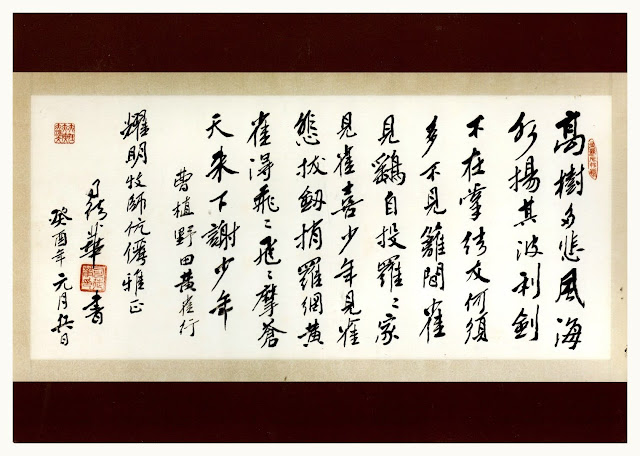 高樹多悲風海
水揚其波利劍
不在掌結友何須
多不見籬間雀
見鷂自投羅〻家
見雀喜少年見雀
悲拔劔捎羅網黃
雀得飛〻飛〻摩蒼
天來下謝少年
曹植野田黃雀行
耀明牧師伉儷雅正
華書
癸酉年元月日